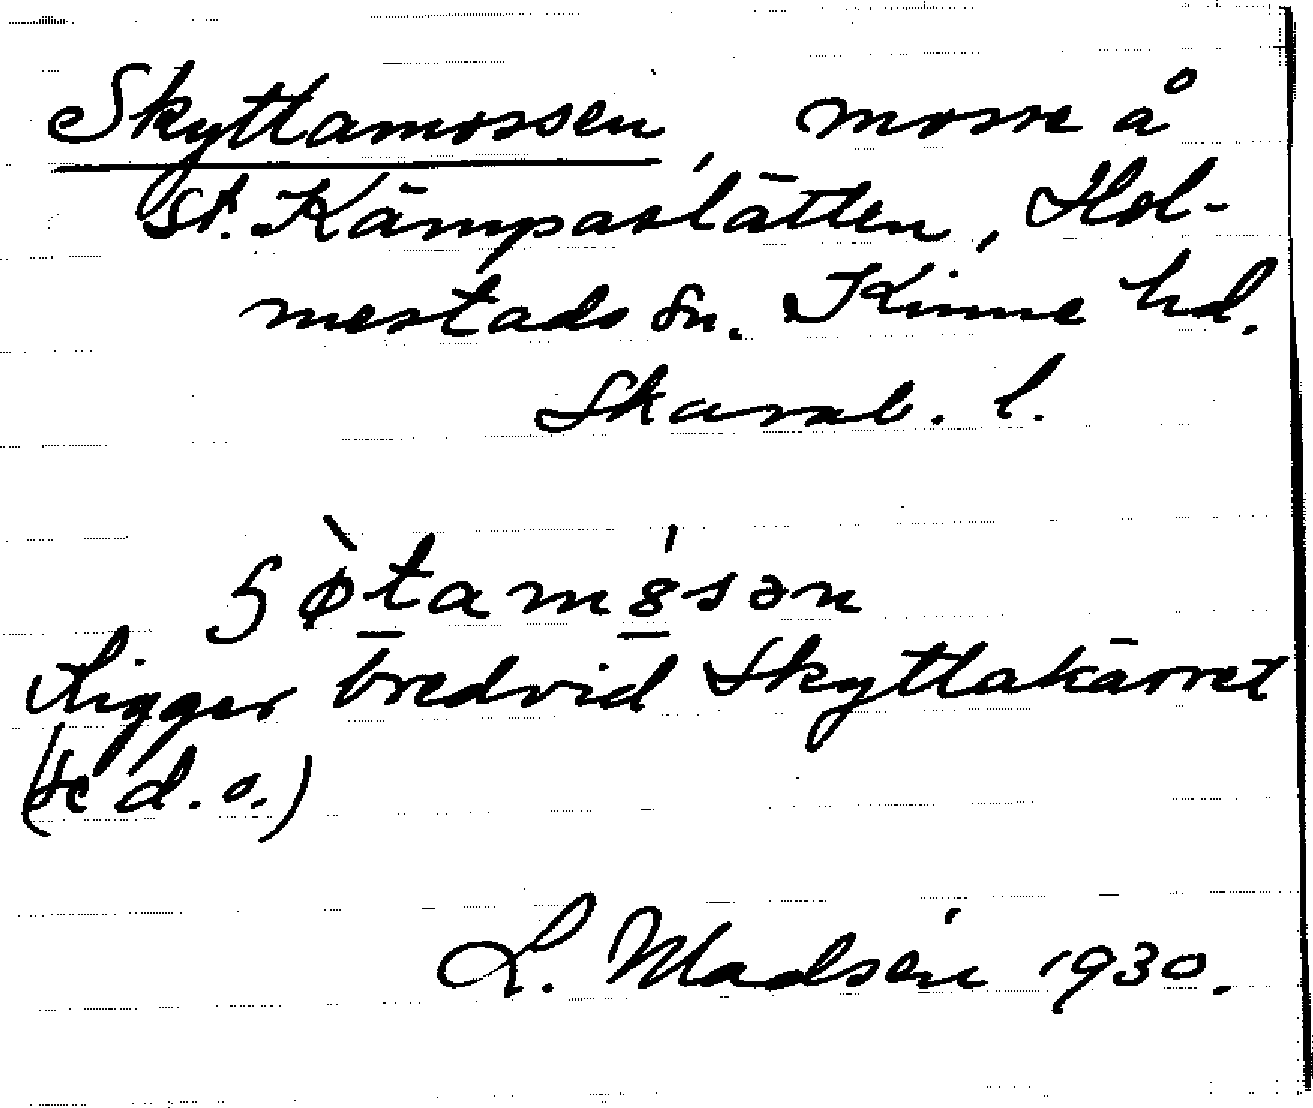 Skyttamossen, mosse å
St. Kämpaslätten, Hol-
mestads sn. Kinne hd.
Skarab. l.
Ligger bredvid Skyttakärret
(se d. o.)
L. Madsén 1930.